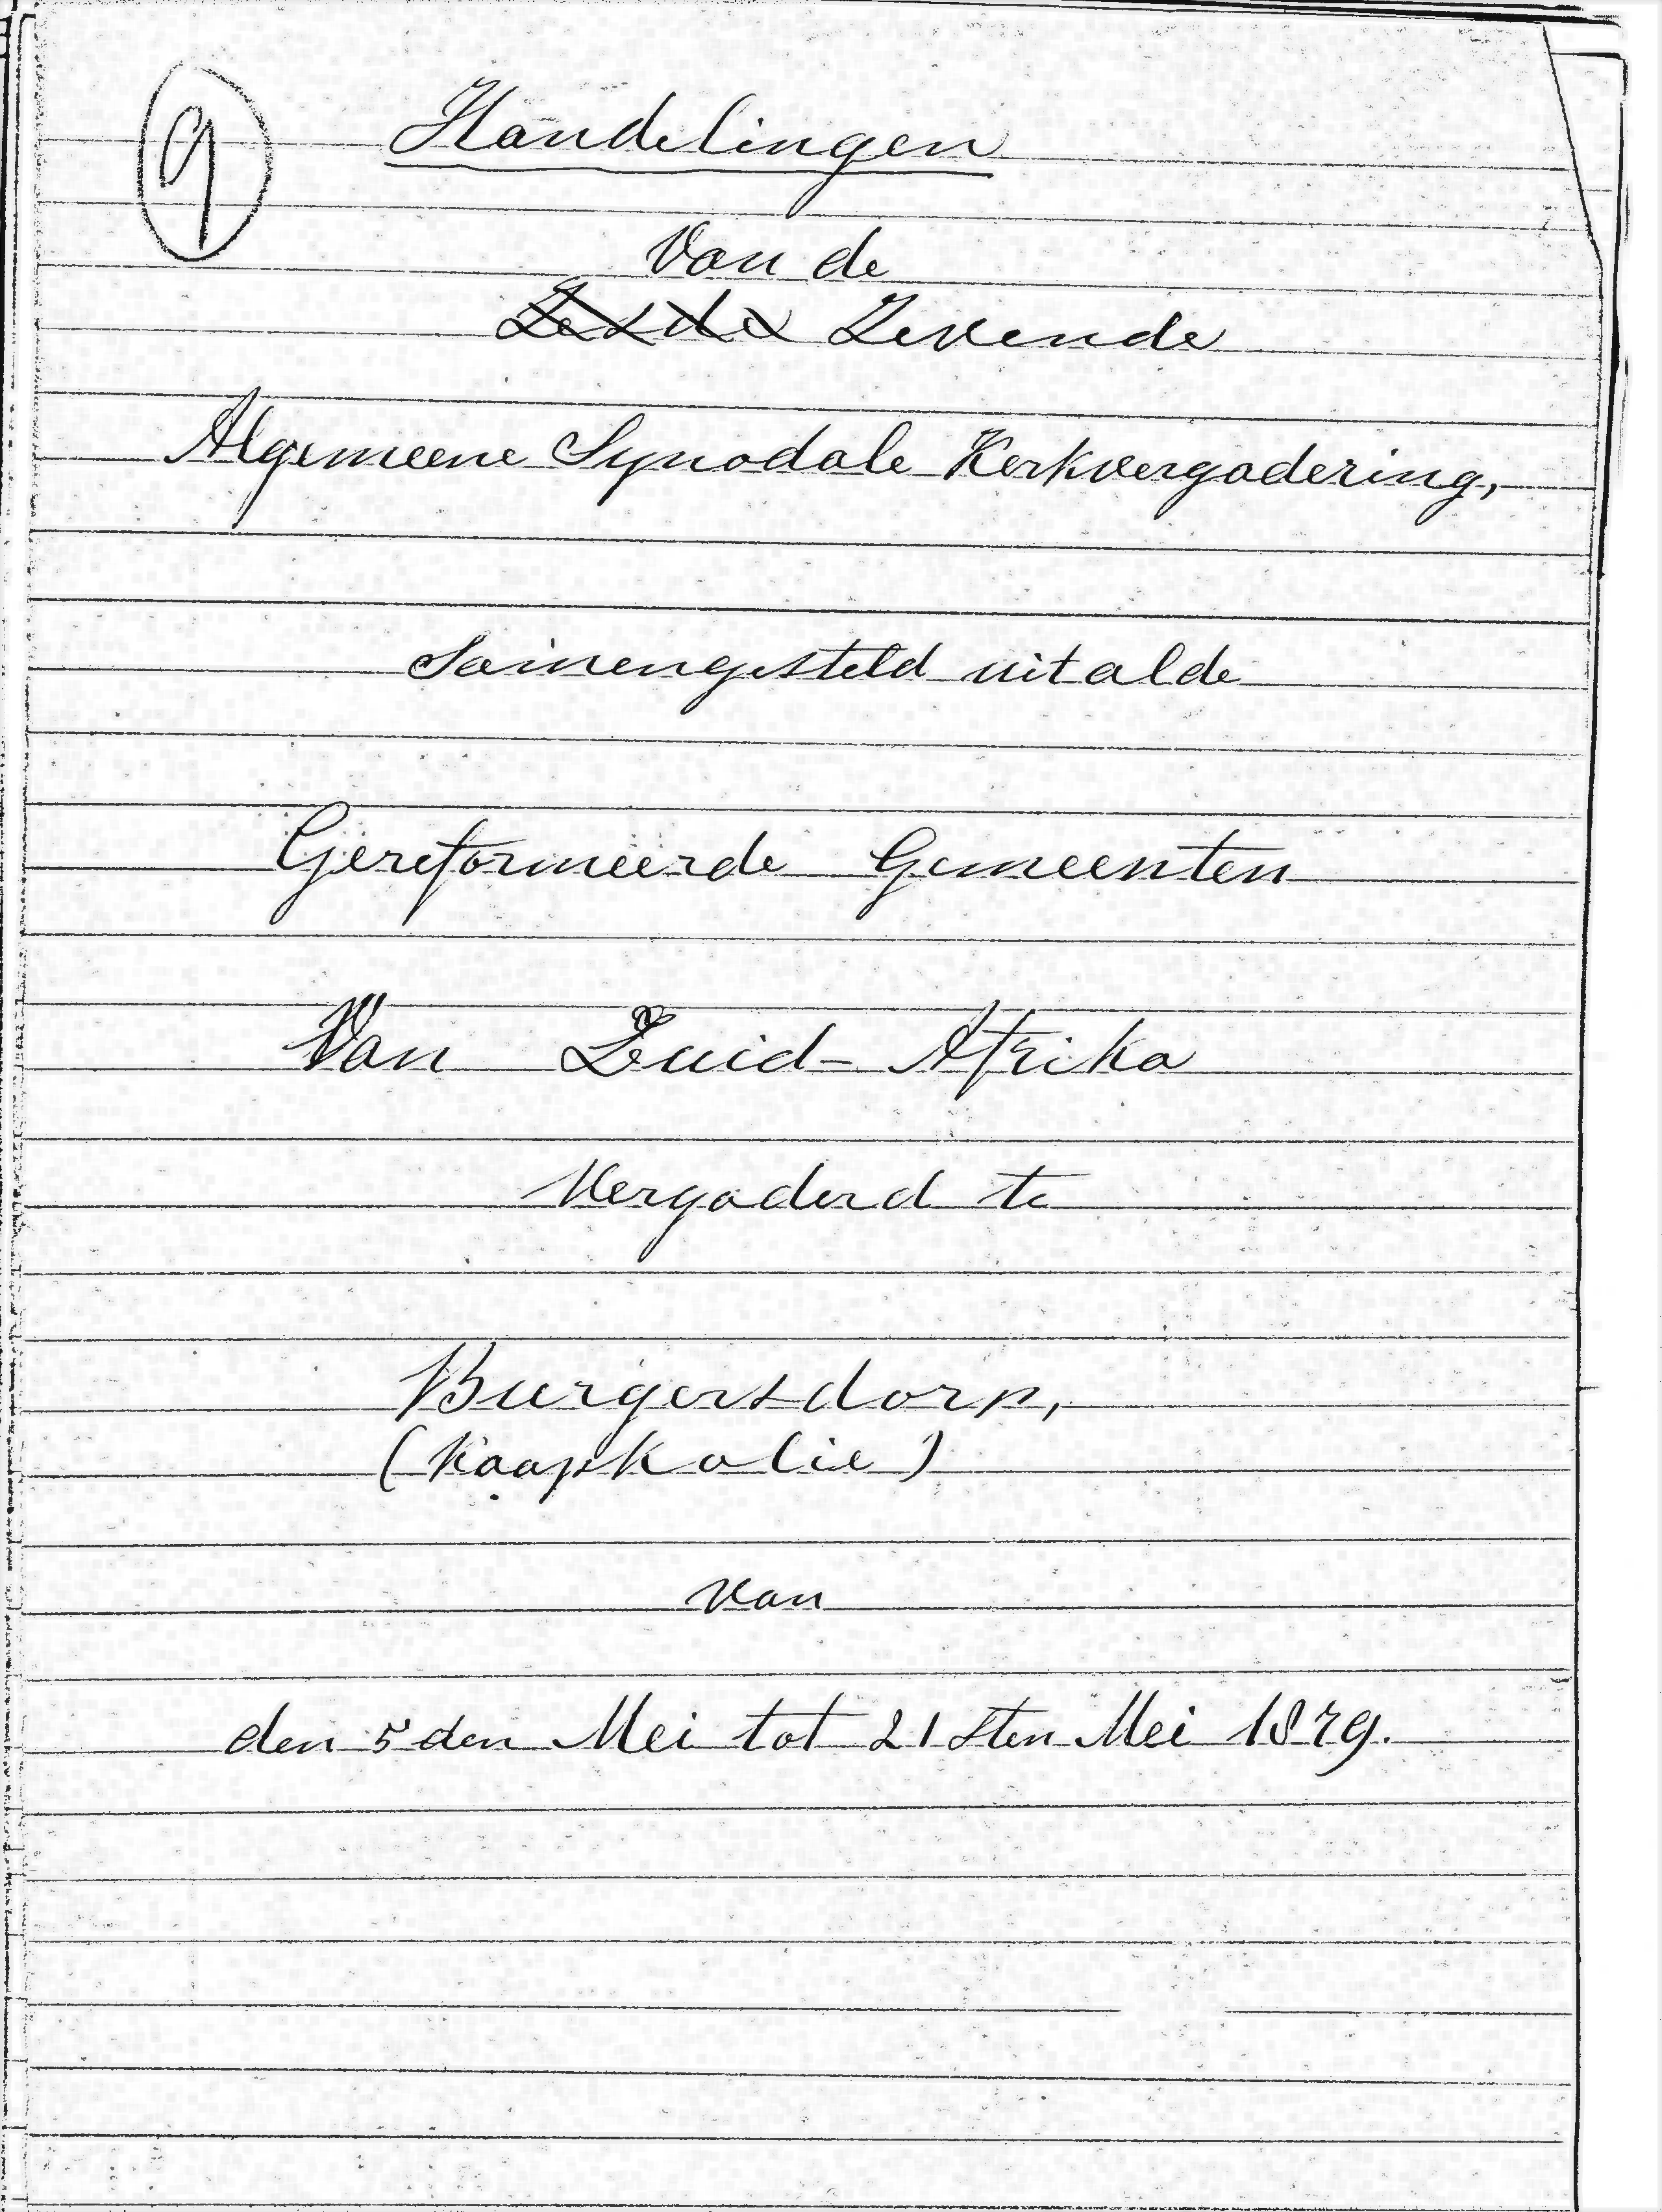 9 Handelingen
Van de
Zesde Zevende
Algemeene Synodale Kerkvergadering,
Samengesteld uit al de
Gereformeerde Gemeenten
Van Zuid-Afrika
Vergaderd te
Burgersdorp,
(Kaapkolie)
van
den 5den Mei tot 21sten Mei 1879.